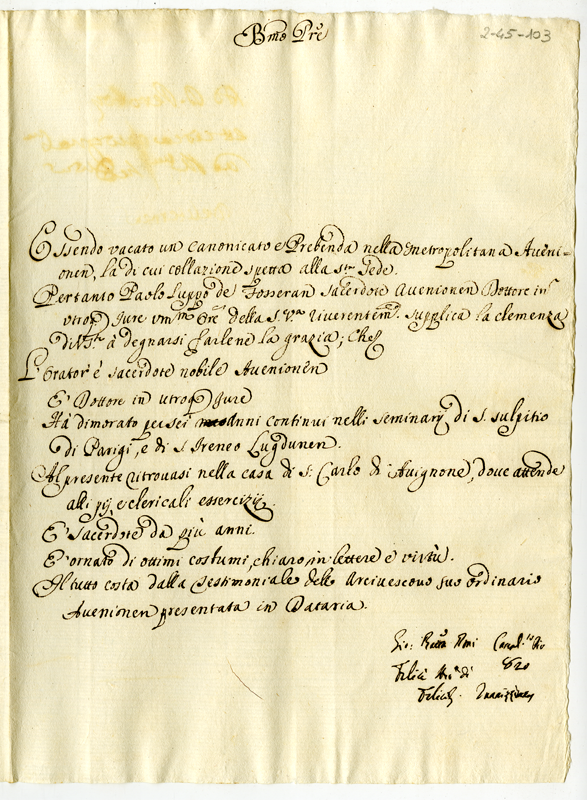 2-45-103
Bmo Pre
Essendo vacato un Canonicato e Prebenda nella Metropolitana Aveni-
onen, la di cui collazione spetta alla sta Sede.
Pertanto Paolo Luppo de Fosseran Sacerdote Avenionen Dottore in
utroq Jure um.mo Ore della S.V. riverentemte supplica la clemenza
di V.S. à degnarsi farlene la grazia; Che
L'Orator è sacerdote nobile Avenionen
E' Dottore in utroq Jure
Hà dimorato per sei anni continui nelli seminarj di S. Sulpitio
di Parigi, e di S. Ireneo Lugdunen.
Al presente ritrovasi nella casa di S. Carlo di Avignone, dove attende
alli pij, e clericali essercizij.
E' Sacerdote da più anni.
E' ornato di ottimi costumi, chiaro in lettere e virtù.
Il tutto costa dalla testimoniale dello Arcivescovo suo ordinario
Avenionen presentata in Dataria.
Gio:
Felici